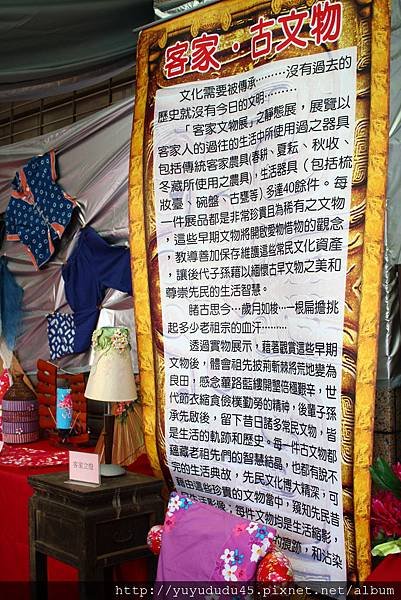 客家‧古文物
文化需要被傳承………沒有過去的
歷史就沒有今日的文明………
「客家文物展」之靜態展，展覽以
客家人的過往的生活中所使用過之器具
包括傳統客家農具(春耕、夏耘、秋收、
冬藏所使用之農具)，生活器具（包括梳
妝臺、碗盤、古甕等）多達40餘件。每
一件展品都是非常珍貴且為稀有之文物
，這些早期文物將開啟愛物惜物的觀念
，教導善加保存維護這些常民文化資產
，讓後代子孫藉以緬懷古早文物之美和
尊崇先民的生活智慧。
睹古思今…歲月如梭…一根扁擔挑
起多少老祖宗的血汗………
透過實物展示，藉著觀賞這些早期
文物後，體會祖先披荊斬棘將荒地變為
良田，感念蓽路藍縷開墾倍極艱辛，世
代節衣縮食儉樸勤勞的精神，後輩子孫
承先啟後，留下昔日諸多常民文物，皆
是生活的軌跡和歷史。每一件古文物都
蘊藏老祖先們的智慧結晶，也都有說不
完的生活典故，先民文化博大精深，可
藉由這些珍貴的文物當中，窺知先民昔
日生活影像，每件文物均是生活縮影，
痕跡，和沾染
客家之燈
http://yuyududu45.pixnet.net/album